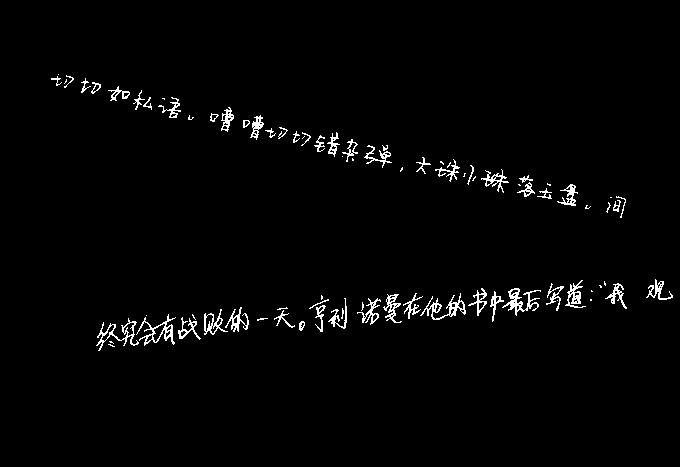 切切如私语。嘈嘈切切错杂弹,大珠小珠落玉盘。间
终究会有战败的一天。亨利诺曼在他的书中最后写道:“我观